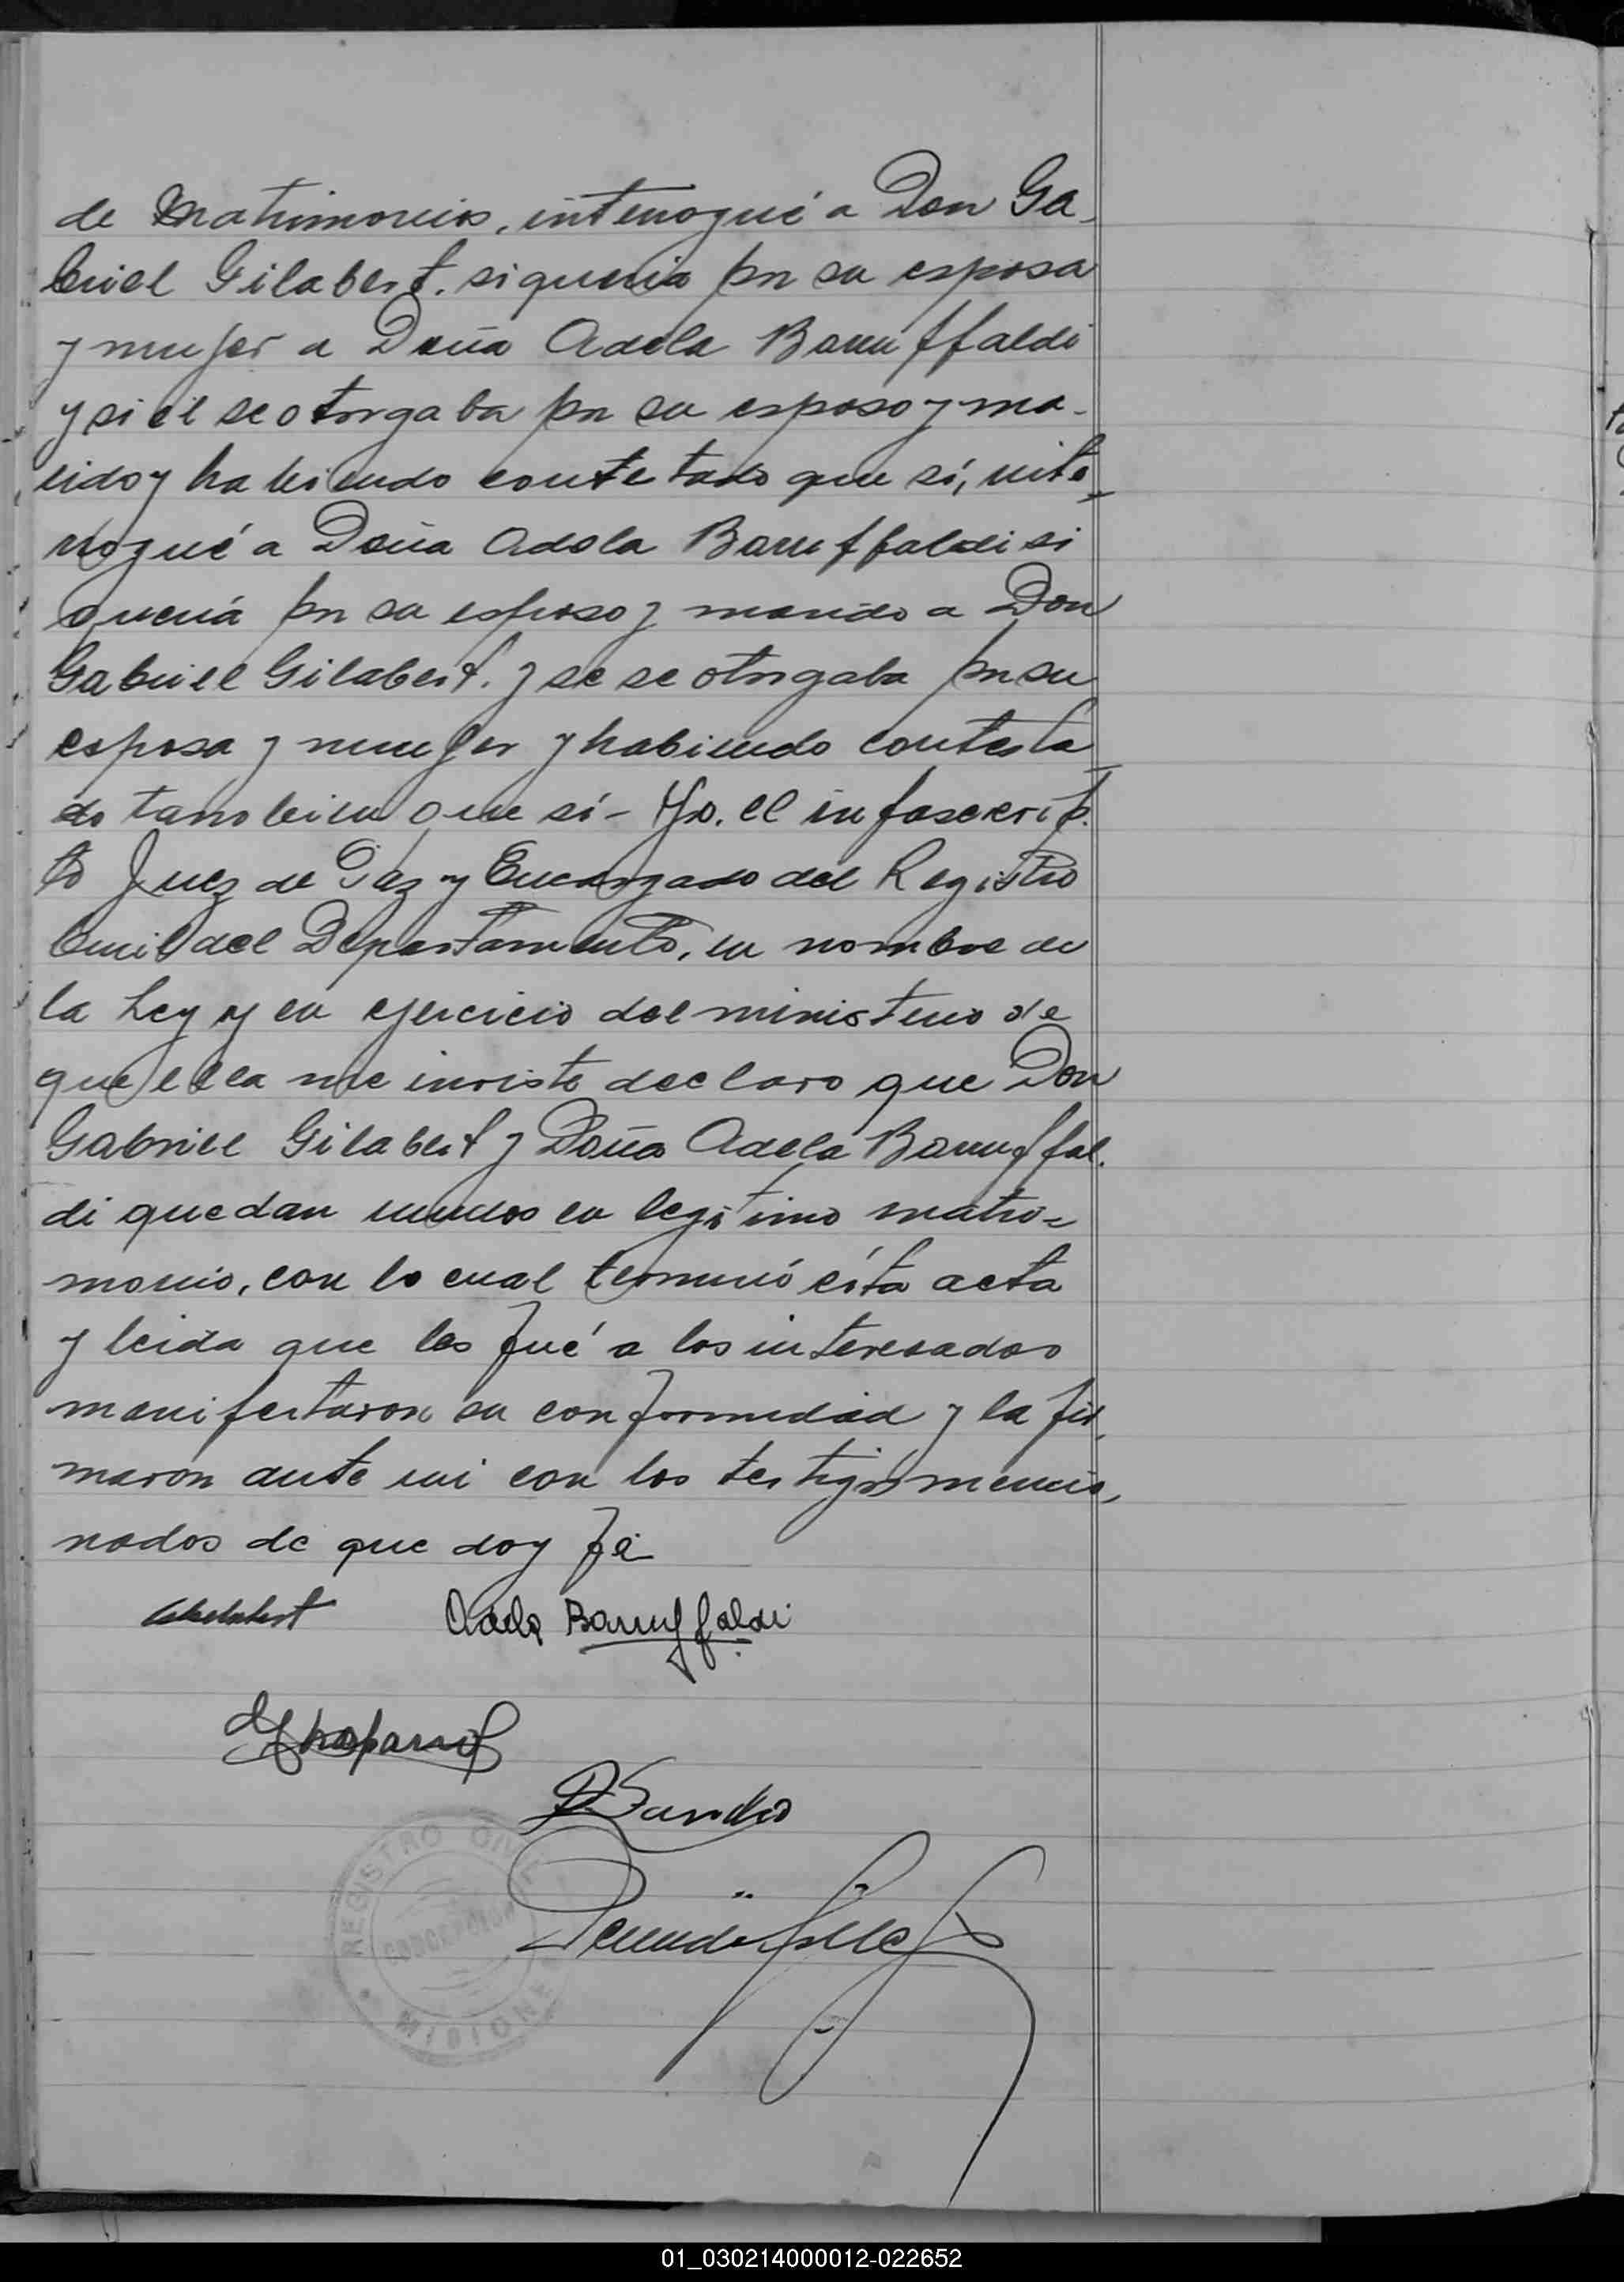 de Matrimonio, interrogué a Don Ga-
briel Gilabert. si queria por su esposa
y mujer a Doña Adela Baruffaldi
y si el se otorgaba por su esposo y ma-
rido y habiendo contetado que sí, inte-
rrogué a Doña Adela Baruffaldi si
queriá por su esposo y marido a Don
Gabriel Gilabert. y se se otorgaba por su
esposa y mujer y habiendo contesta
do tambien que sí - Yo. el infrascrip-
to Juez de Paz y Encargado del Registro
Civil del Departamento, en nombre de
la Ley y en ejercicio del ministerio de
que ella me inviste declaro que Don
Gabriel Gilabert y Doña Adela Baruffal-
di quedan unidos en legítimo matri=
monio, con lo cual terminó ésta acta
y leida que les fué a los interesados
manifestaron su conformidad y la fir-
maron ante mi con los testigos mencio-
nados de que doy fé
Adela Baruffaldi
REGISTRO CIVIL
CONCEPCION
MISIONES
01_030214000012-022652